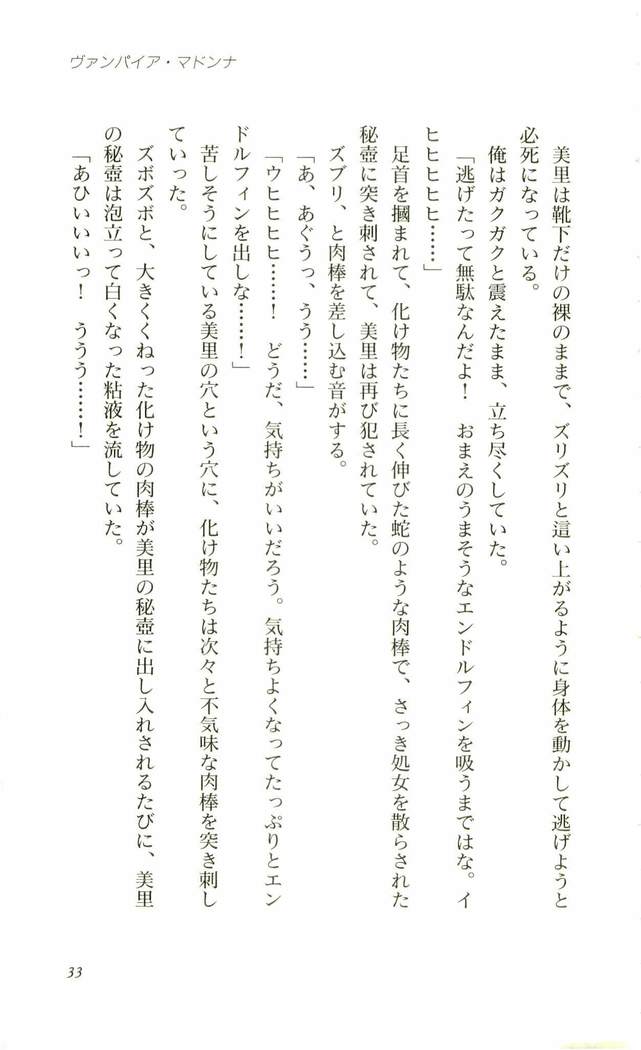 ヴァンパイア・マドンナ
美里は靴下だけの裸のままで、ズリズリと這い上がるように身体を動かして逃げようと
必死になっている。
俺はガクガクと震えたまま、立ち尽くしていた。
「逃げたって無駄なんだよ！　おまえのうまそうなエンドルフィンを吸うまではな。イ
ヒヒヒヒヒ……」
足首を摑まれて、化け物たちに長く伸びた蛇のような肉棒で、さっき処女を散らされた
秘壺に突き刺されて、美里は再び犯されていた。
ズブリ、と肉棒を差し込む音がする。
「あ、あぐうっ、うう……」
「ウヒヒヒヒ……！　どうだ、気持ちがいいだろう。気持ちよくなってたっぷりとエン
ドルフィンを出しな……！」
苦しそうにしている美里の穴という穴に、化け物たちは次々と不気味な肉棒を突き刺し
ていった。
ズボズボと、大きくくねった化け物の肉棒が美里の秘壺に出し入れされるたびに、美里
の秘壺は泡立って白くなった粘液を流していた。
「あひいいいっ！　ううう……！」
33